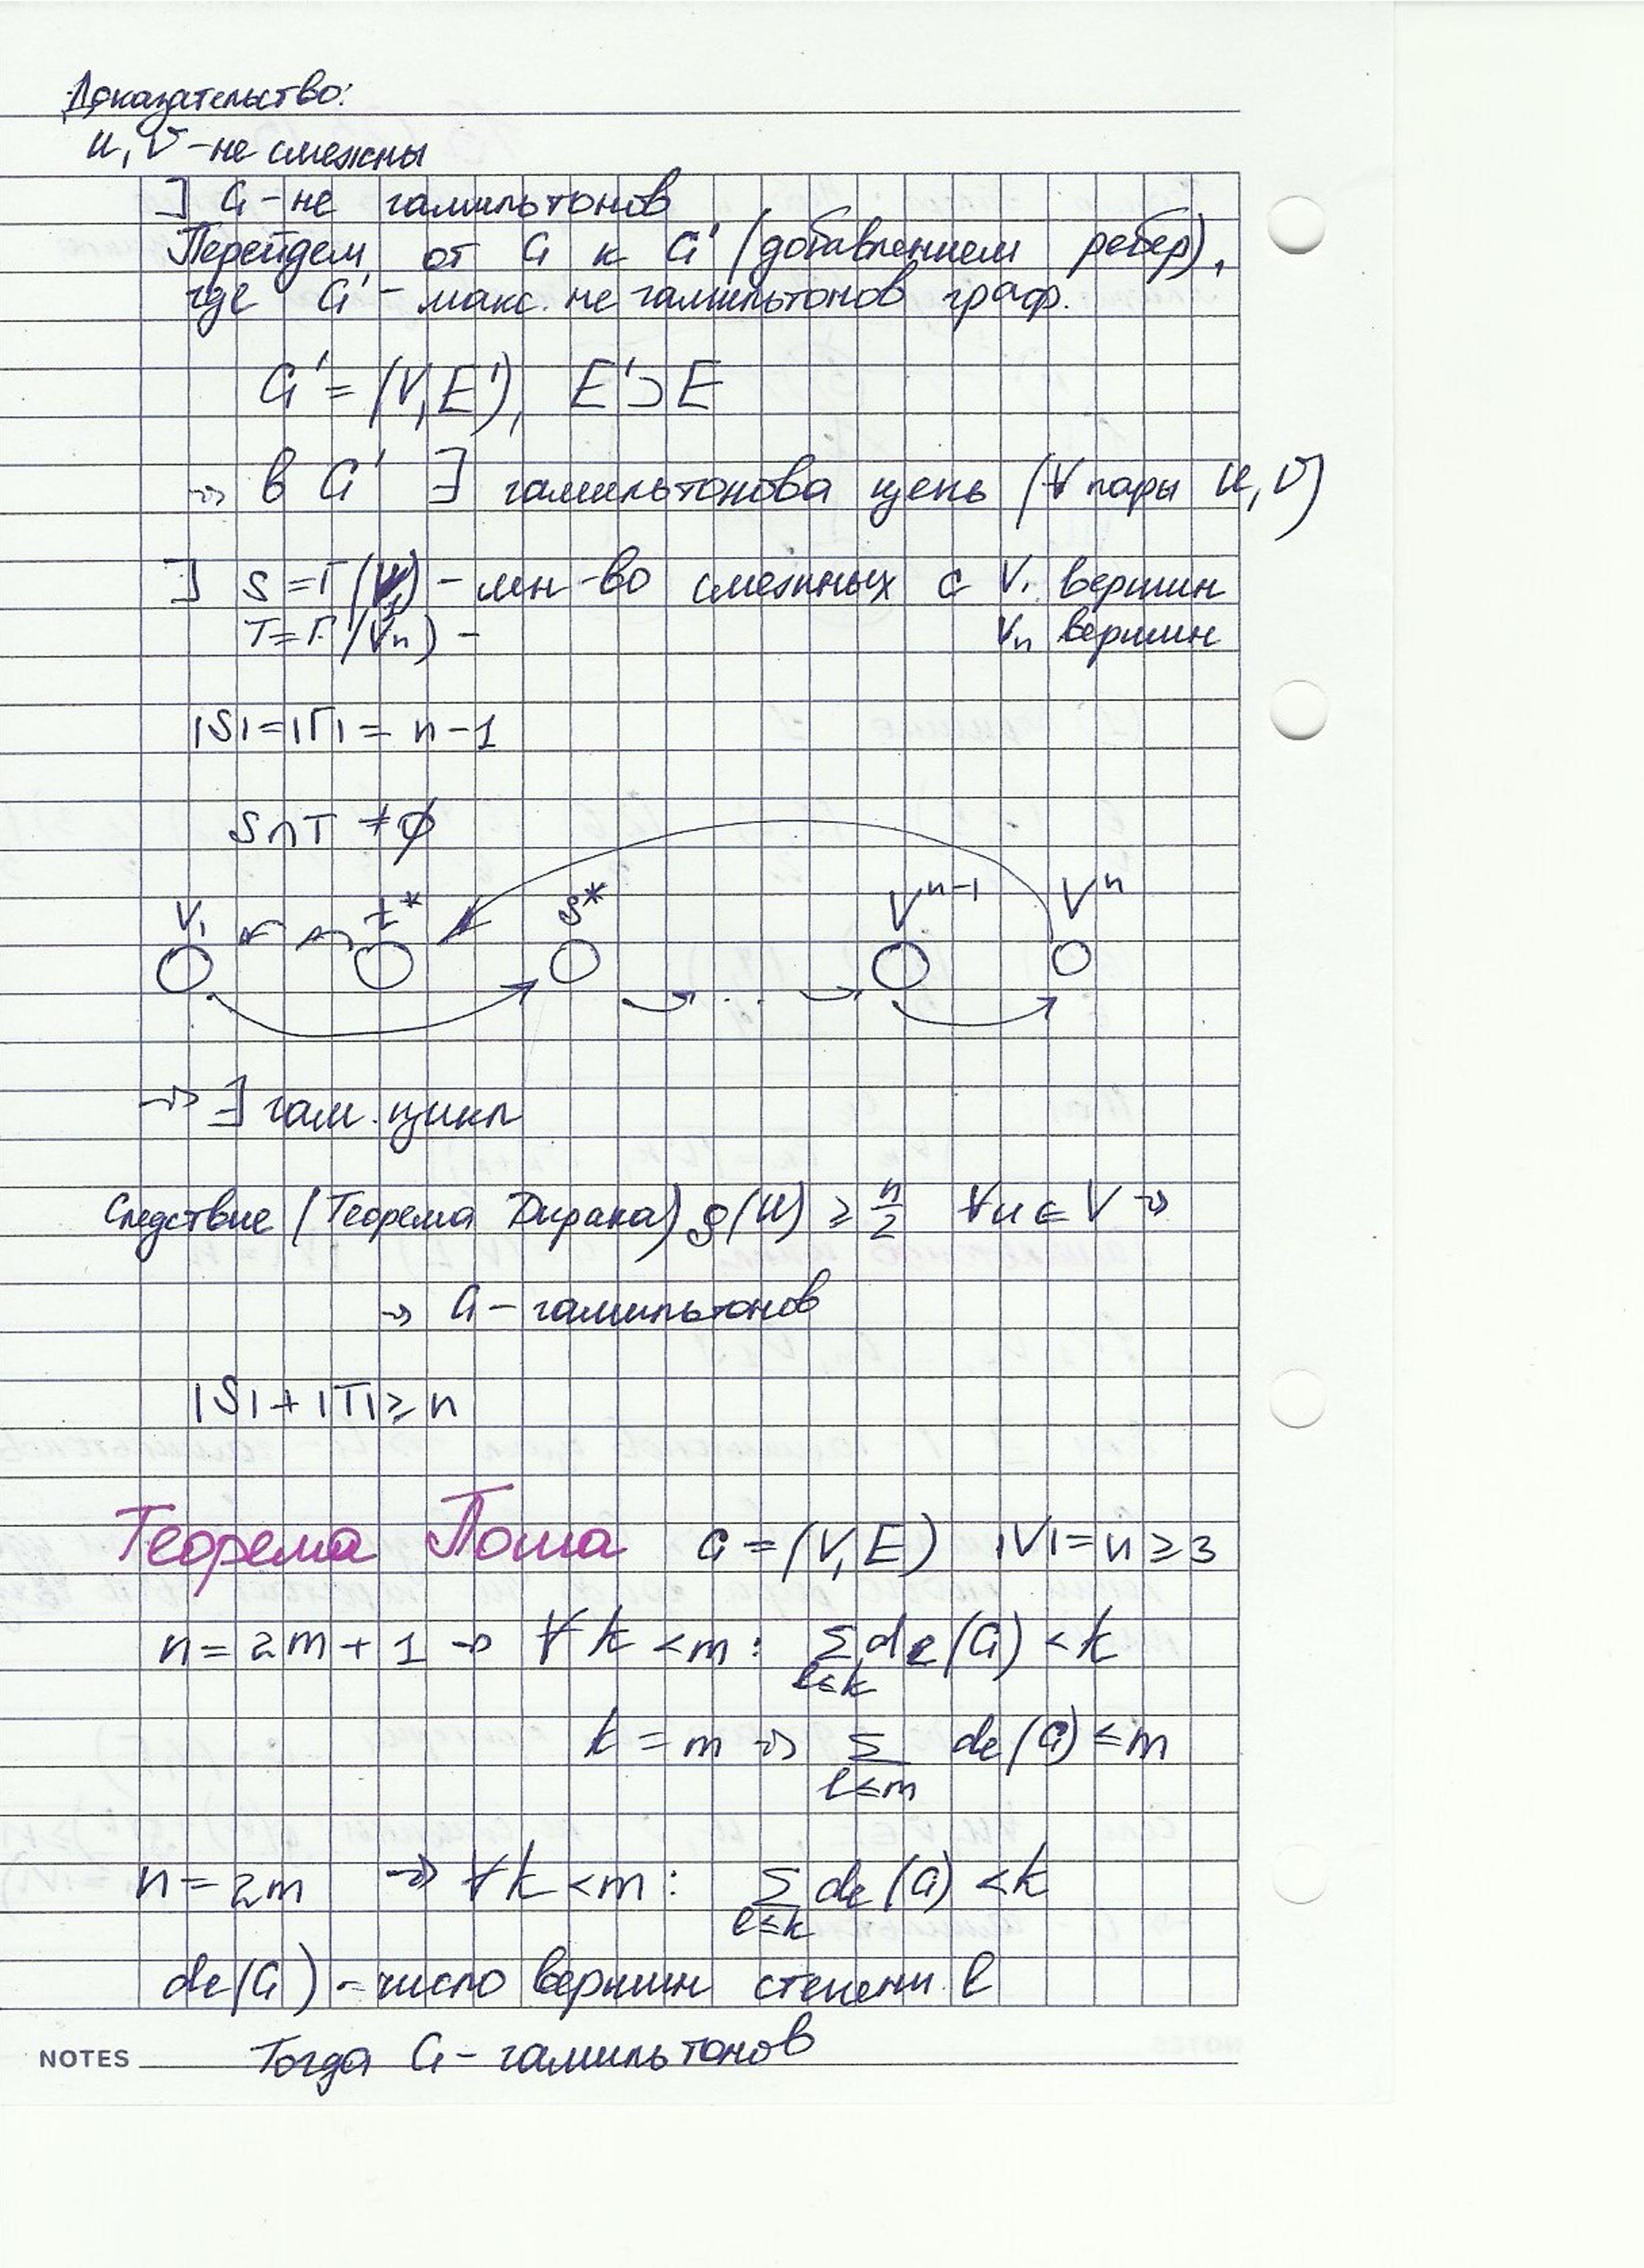 Доказательство:
u, v - не смежны
] G - не гамильтонов
Перейдем от G к G' (добавлением ребер),
где G' - макс. не гамильтонов граф.
G' = (V, E'), E' ⊃ E
→ в G' ∃ гамильтонова цепь (∀ пары u, v)
] S = Γ(V₁) - мн-во смежных с V₁ вершин
T = Γ(Vn) - Vn вершин
|S| = |Γ| = n - 1
S ∩ T ≠ ∅
V₁ t* S* Vⁿ⁻¹ Vⁿ
→ ∃ гам. цикл
Следствие (Теорема Дирака) ρ(u) ≥ n/2 ∀u ∈ V →
→ G - гамильтонов
|S| + |T| ≥ n
Теорема Поша G = (V, E) |V| = n ≥ 3
n = 2m + 1 → ∀ k < m : Σ dℓ(G) < k
ℓ≤k
k = m → Σ dℓ(G) ≤ m
ℓ≤m
n = 2m → ∀ k < m : Σ dℓ(G) < k
ℓ≤k
dℓ(G) - число вершин степени ℓ
NOTES Тогда G - гамильтонов